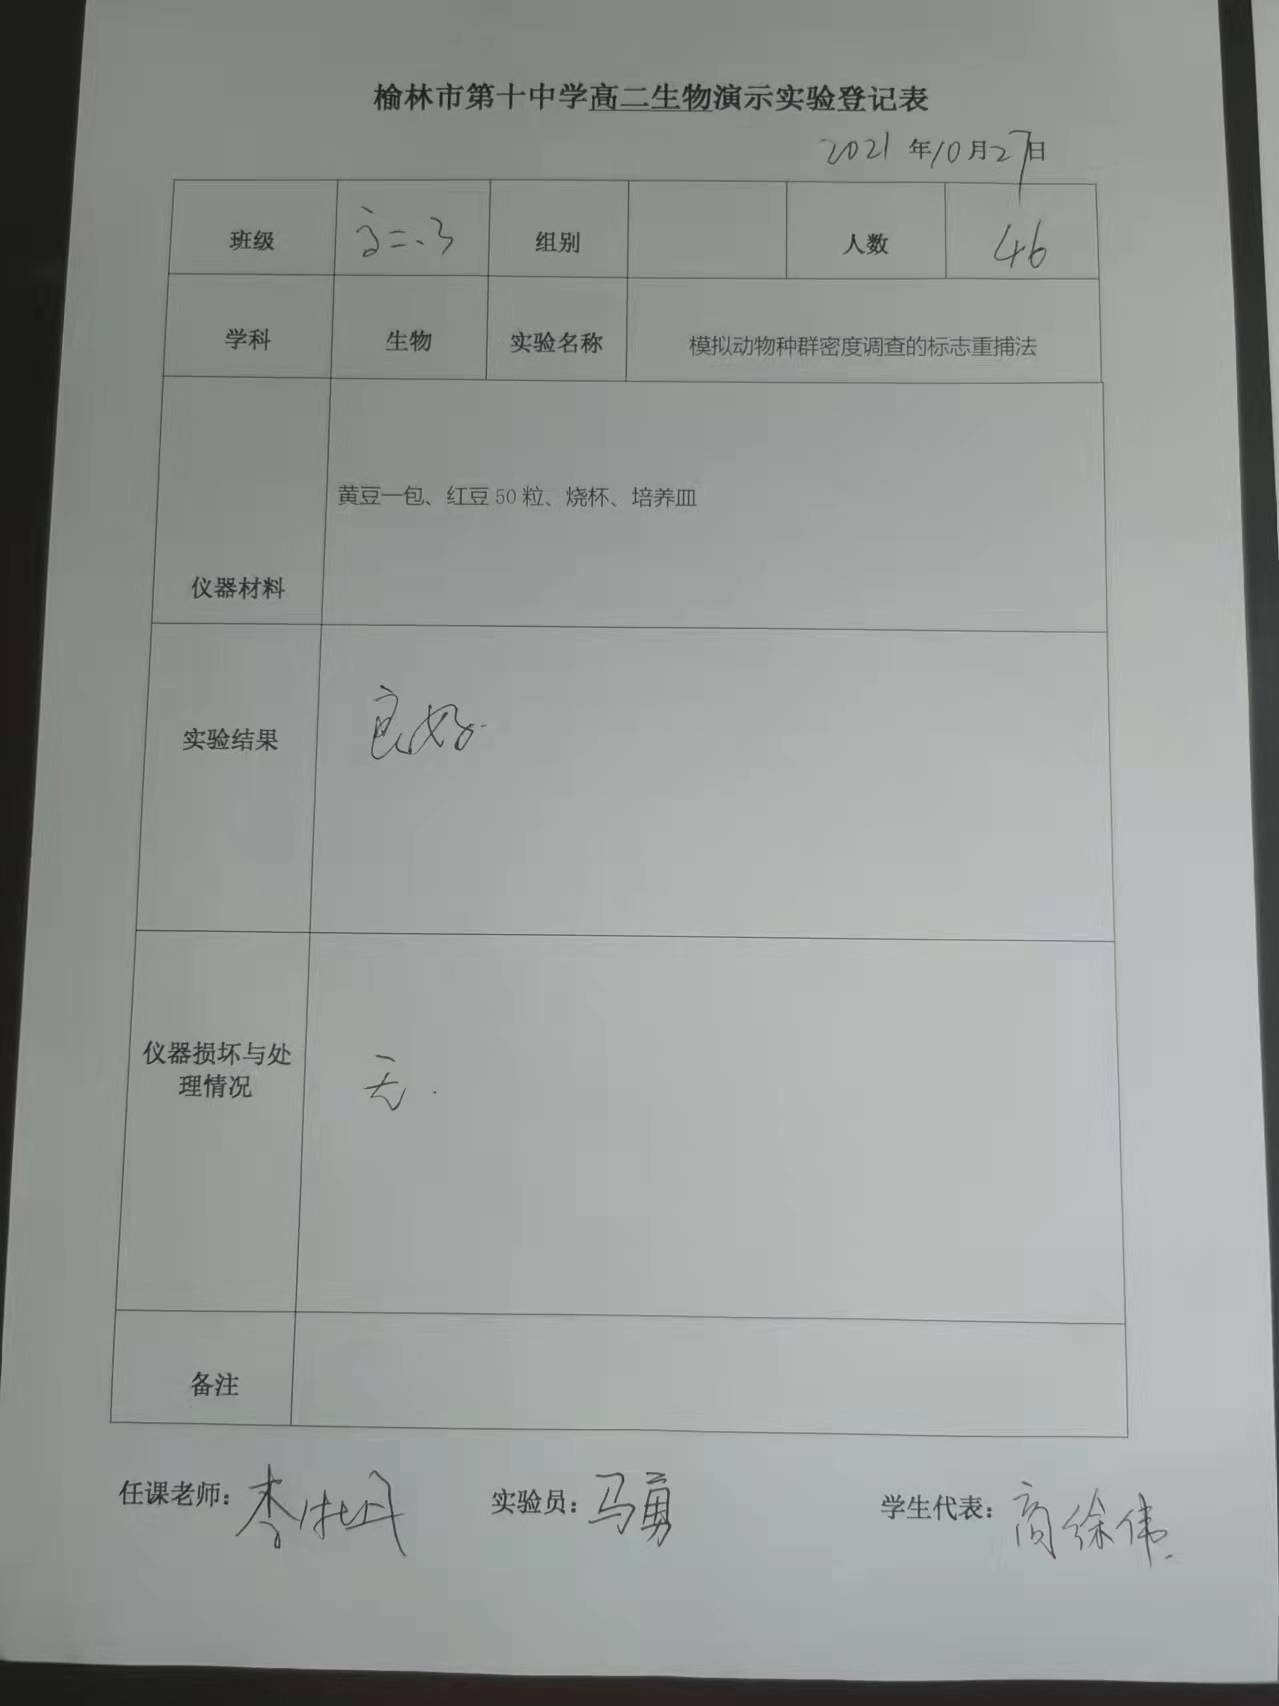 榆林市第十中学高二生物演示实验登记表
2021 年 10 月 27 日
班级 高二.3 组别 人数 46
学科 生物 实验名称 模拟动物种群密度调查的标志重捕法
黄豆一包、红豆 50 粒、烧杯、培养皿
仪器材料
实验结果 良好.
仪器损坏与处
理情况
无.
备注
任课老师: 实验员: 马勇 学生代表: 商徐伟